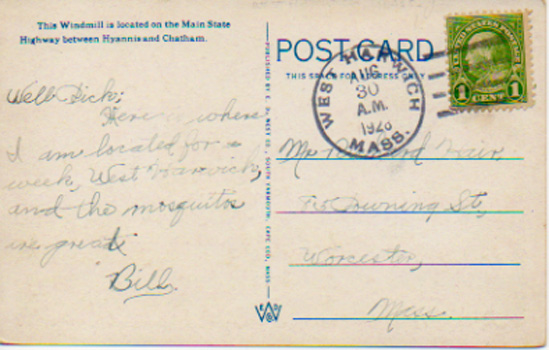 This Windmill is located on the Main State
Highway between Hyannis and Chatham.
Well Dick;
Here is where
I am located for a
week, West Harwich,
and the mosquitos
are great
Bill.
PUBLISHED BY E. D. WEST CO. SOUTH YARMOUTH, CAPE COD, MASS.
POST CARD
THIS SPACE FOR ADDRESS ONLY
WEST HARWICH
AUG
30
A.M.
1928
MASS.
UNITED STATES POSTAGE
1 CENT 1
Mr
Downing St.,
Worcester,
Mass.